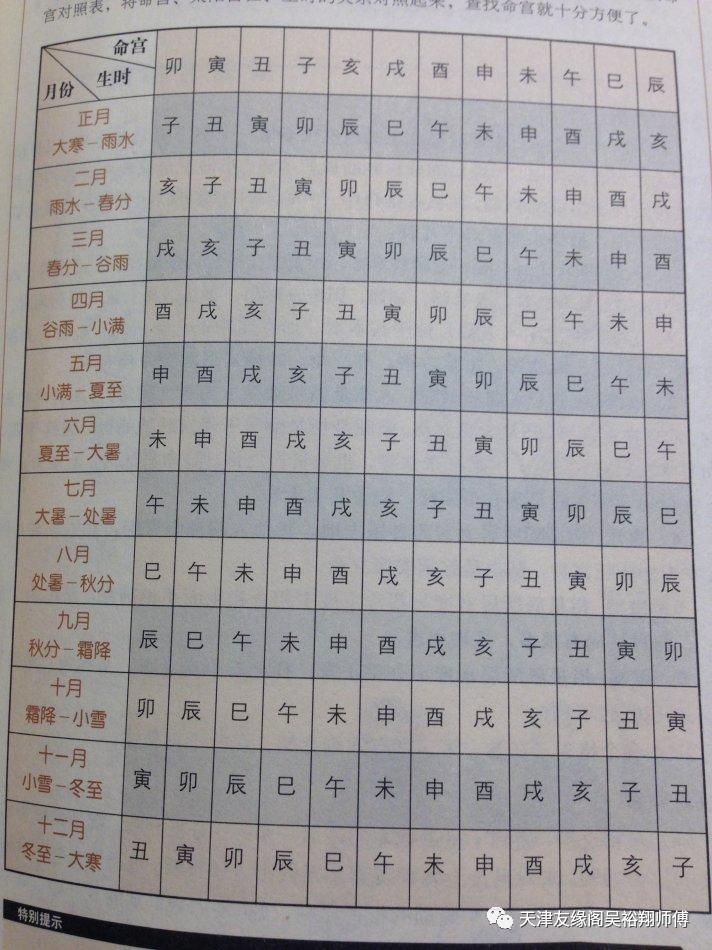 宫对照表，将命宫、
起来，查找命宫就十分方便了。
命宫
生时
月份
卯 寅 丑 子 亥 戌 酉 申 未 午 巳 辰
正月
大寒－雨水
子 丑 寅 卯 辰 巳 午 未 申 酉 戌 亥
二月
雨水－春分
亥 子 丑 寅 卯 辰 巳 午 未 申 酉 戌
三月
春分－谷雨
戌 亥 子 丑 寅 卯 辰 巳 午 未 申 酉
四月
谷雨－小满
酉 戌 亥 子 丑 寅 卯 辰 巳 午 未 申
五月
小满－夏至
申 酉 戌 亥 子 丑 寅 卯 辰 巳 午 未
六月
夏至－大暑
未 申 酉 戌 亥 子 丑 寅 卯 辰 巳 午
七月
大暑－处暑
午 未 申 酉 戌 亥 子 丑 寅 卯 辰 巳
八月
处暑－秋分
巳 午 未 申 酉 戌 亥 子 丑 寅 卯 辰
九月
秋分－霜降
辰 巳 午 未 申 酉 戌 亥 子 丑 寅 卯
十月
霜降－小雪
卯 辰 巳 午 未 申 酉 戌 亥 子 丑 寅
十一月
小雪－冬至
寅 卯 辰 巳 午 未 申 酉 戌 亥 子 丑
十二月
冬至－大寒
丑 寅 卯 辰 巳 午 未 申 酉 戌 亥 子
特别提示
天津友缘阁吴裕翔师傅